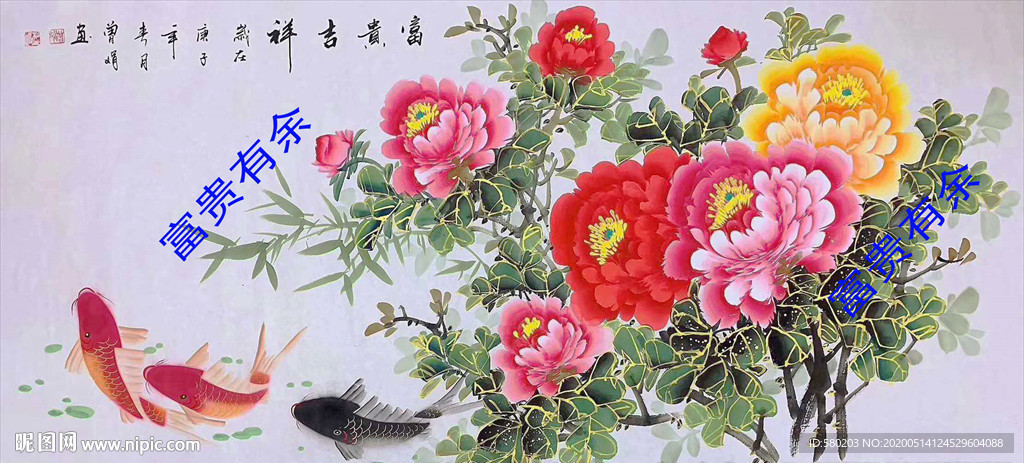 富貴吉祥
歲在
庚子
年
春月
曾娟
画
富贵有余
富贵有余
昵图网 www.nipic.com
ID:580203 NO:20200514124529604088